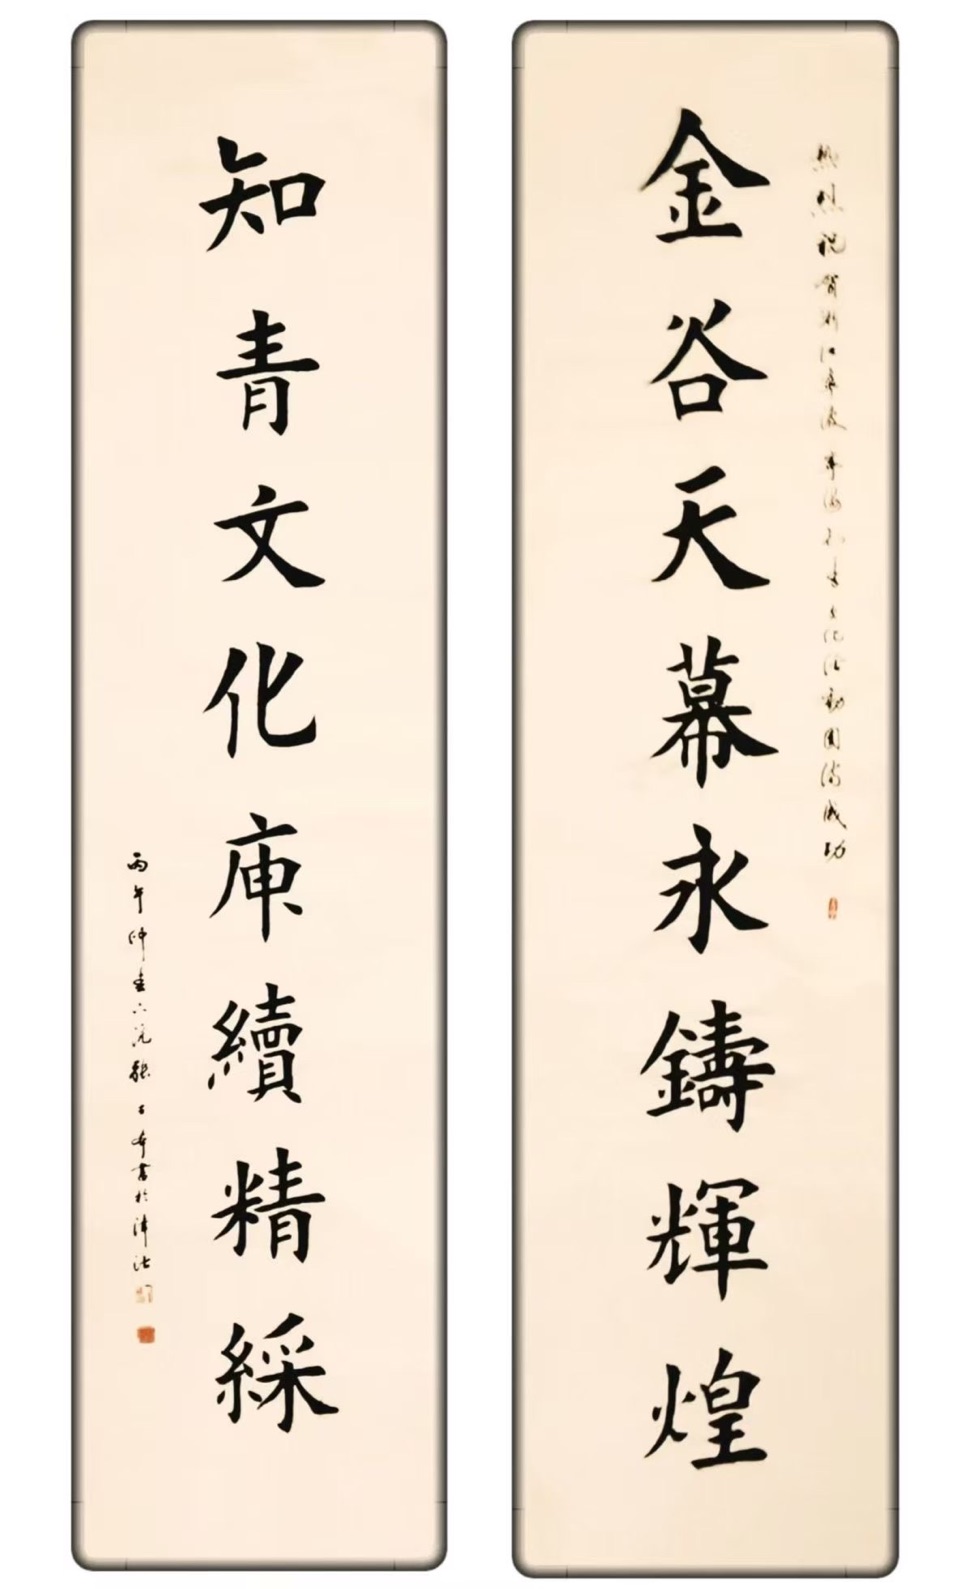 熱烈祝賀浙江寧波寧海知青文化活動圓滿成功
金谷天幕永鑄輝煌
知青文化庫續精綵
丙午仲春張書於津沽